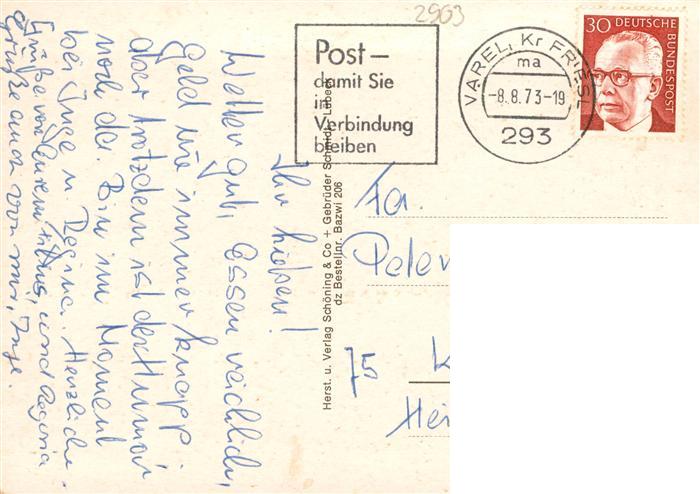 2903
Post–
damit Sie
in
Verbindung
bleiben
VAREL, Kr FRIESL
ma
-8.8.73-19
293
30 DEUTSCHE
BUNDESPOST
Ihr lieben!
Wetter gut, Essen reichlich,
Geld wie immer knapp
aber trotzdem ist der Humor
noch da. Bin im Moment
bei Inge u. Regina. Herzliche
Grüße von Eurem und Regina
Grüße auch von mir, Inge.
Herst. u. Verlag Schöning & Co + Gebrüder Schmidt, Lübeck
dz Bestellnr. Bazwi 206
Fa.
Peter
75 K
Hei